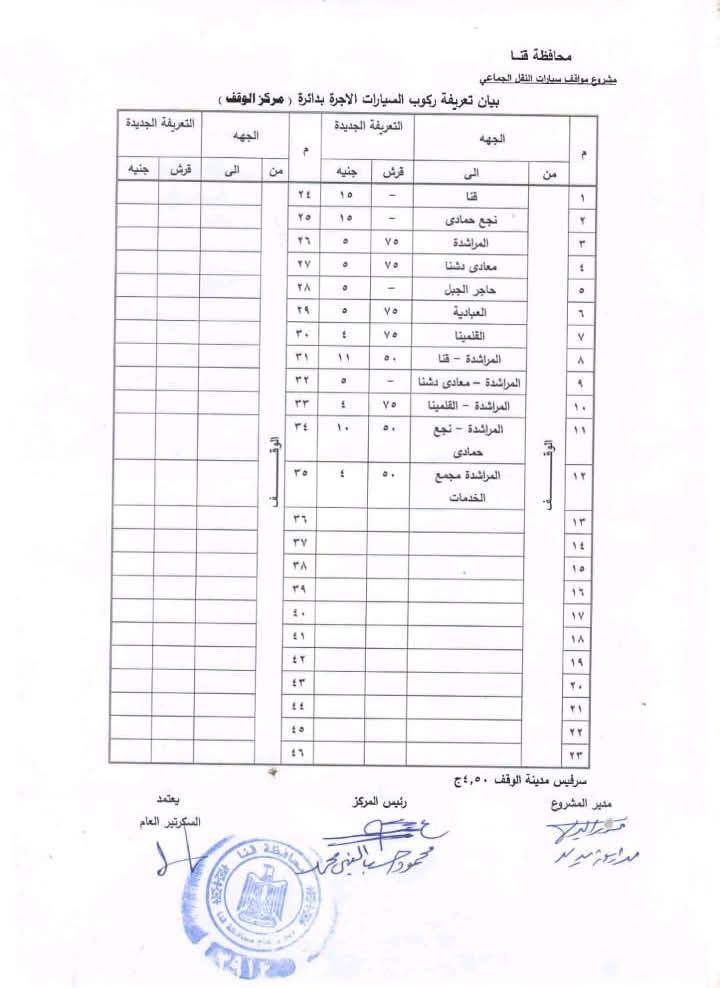 محافظة قنـا
مشروع مواقف سيارات النقل الجماعي
بيان تعريفة ركوب السيارات الاجرة بدائرة ( مركز الوقف )
م الجهه التعريفة الجديدة م الجهه التعريفة الجديدة
من الى قرش جنيه من الى قرش جنيه
الوقـــــف الوقـــــف
١ قنا – ١٥ ٢٤
٢ نجع حمادى – ١٥ ٢٥
٣ المراشدة ٧٥ ٥ ٢٦
٤ معادى دشنا ٧٥ ٥ ٢٧
٥ حاجر الجبل – ٥ ٢٨
٦ العبادية ٧٥ ٥ ٢٩
٧ القلمينا ٧٥ ٤ ٣٠
٨ المراشدة – قنا ٥٠ ١١ ٣١
٩ المراشدة – معادى دشنا – ٥ ٣٢
١٠ المراشدة – القلمينا ٧٥ ٤ ٣٣
١١ المراشدة – نجع ٥٠ ١٠ ٣٤
حمادى
١٢ المراشدة مجمع ٥٠ ٤ ٣٥
الخدمات
١٣ ٣٦
١٤ ٣٧
١٥ ٣٨
١٦ ٣٩
١٧ ٤٠
١٨ ٤١
١٩ ٤٢
٢٠ ٤٣
٢١ ٤٤
٢٢ ٤٥
٢٣ ٤٦
سرفيس مدينة الوقف ٤,٥٠ج
مدير المشروع رئيس المركز يعتمد
السكرتير العام
محافظة قنا